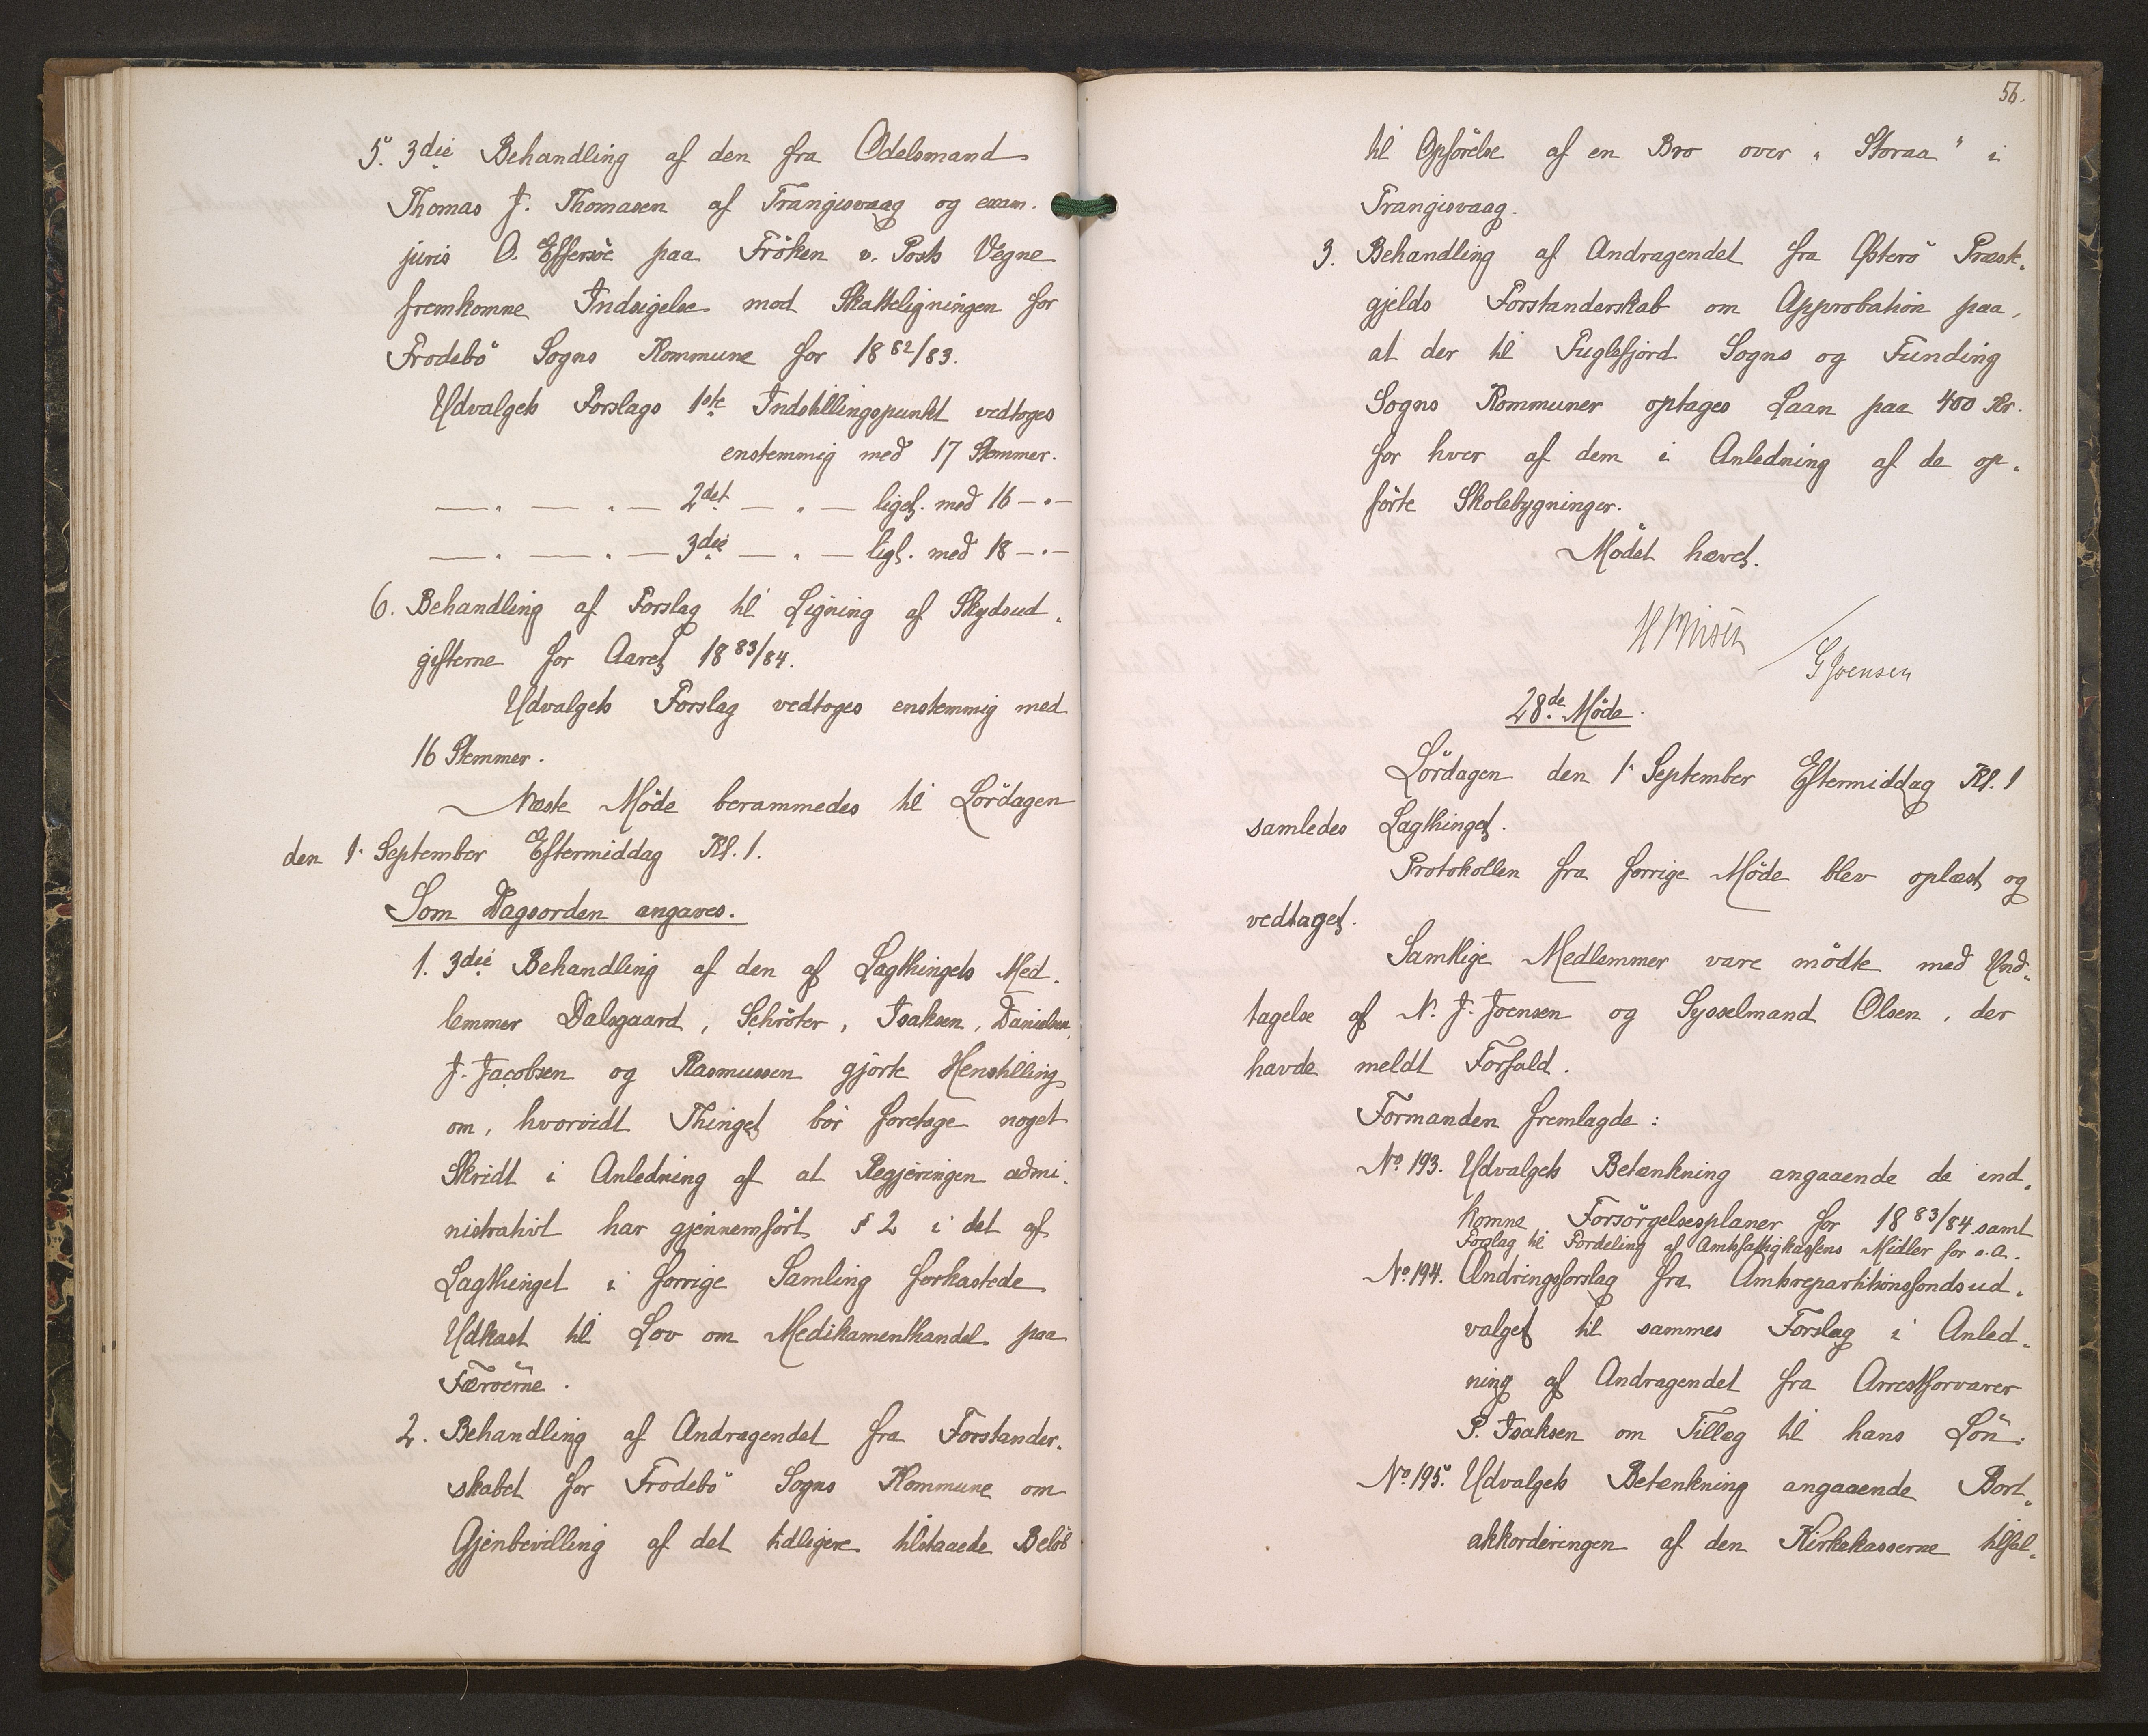 5. 3die Behandling af den fra Odelsmand
Thomas J. Thomasen af Trangisvaag og exam.
juris O. Effersöe paa Fröken v. Posts Vegne
fremkomne Indsigelse mod Skatteligningen for
Frodebö Sogns Kommune for 1882/83.
Udvalgets Forslags 1ste Indstillingspunkt vedtoges
enstemmig med 17 Stemmer.
— " — — " — 2det — " — ligel. med 16 — " —
— " — — " — 3die — " — ligl. med 18 — " —
6. Behandling af Forslag til Ligning af Skydsud-
gifterne for Aaret 1883/84.
Udvalgets Forslag vedtoges enstemmig med
16 Stemmer.
Næste Möde berammedes til Lördagen
den 1. September Eftermiddag Kl. 1.
Som Dagsorden angaves.
1. 3die Behandling af den af Lagthingets Med-
lemmer Dalsgaard, Schröter, Isaksen, Danielsen,
J. Jacobsen og Rasmussen gjorte Henstilling
om, hvorvidt Thinget bör foretage noget
Skridt i Anledning af at Regjeringen admi-
nistrativt har gjennemfört § 2 i det af
Lagthinget i forrige Samling forkastede
Udkast til Lov om Medikamenthandel paa
Færöerne.
2. Behandling af Andragendet fra Forstander-
skabet for Frodebö Sogns Kommune om
Gjenbevilling af det tidligere tilstaaede Belöb
56.
til Opförelse af en Bro over "Storaa" i
Trangisvaag.
3. Behandling af Andragendet fra Österö Præste-
gjelds Forstanderskab om Approbation paa,
at der til Fuglefjord Sogns og Funding
Sogns Kommuner optages Laan paa 400 Kr.
for hver af dem i Anledning af de op-
förte Skolebygninger.
Mödet hævet.
G Joensen
28de Möde.
Lördagen den 1. September Eftermiddag Kl. 1
samledes Lagthinget.
Protokollen fra forrige Möde blev oplæst og
vedtaget.
Samtlige Medlemmer vare mödte med Und-
tagelse af N. J. Joensen og Sysselmand Olsen, der
havde meldt Forfald.
Formanden fremlagde:
No. 193. Udvalgets Betænkning angaaende de ind-
komne Forsörgelsesplaner for 1883/84 samt
Forslag til Fordeling af Amtsfattigkassens Midler for s. A.
No. 194. Ændringsforslag fra Amtsrepartitionsfondsud-
valget til sammes Forslag i Anled-
ning af Andragendet fra Arrestforvarer
P. Isaksen om Tillæg til hans Lön.
No. 195. Udvalgets Betænkning angaaende Bort-
akkorderingen af den Kirkekasserne tilfal-